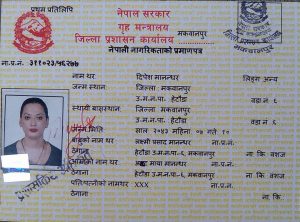 प्रथम प्रतिलिपि
नेपाल सरकार
गृह मन्त्रालय
जिल्ला प्रशासन कार्यालय, मकवानपुर
नेपाली नागरिकताको प्रमाणपत्र
ना.प्र.नं. ३११०२३/५६२७७
नाम थर दिपेश मानन्धर लिङ्ग अन्य
जन्म स्थान जिल्ला मकवानपुर
उ.म.न.पा. हेटौंडा वडा नं. ६
स्थायी बासस्थान जिल्ला मकवानपुर
उ.म.न.पा. हेटौंडा वडा नं. ६
जन्म मिति साल २०४२ महिना ०५ गते १०
बाबुको नाम थर लक्ष्मी प्रसाद मानन्धर ना.प्र.नं. ना कि वंशज
ठेगाना हेटौंडा उ.म.न.पा.-६, मकवानपुर
आमाको नाम थर माया मानन्धर ना.प्र.नं. ना कि वंशज
ठेगाना हेटौंडा उ.म.न.पा.-६, मकवानपुर
पति/पत्नीको नाम थर XXX ना.प्र.नं. ना कि
ठेगाना